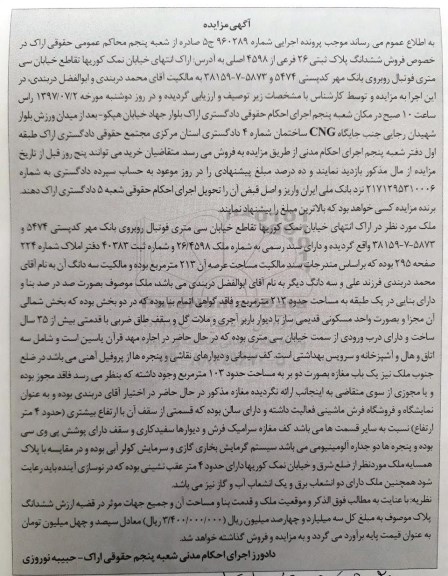 آگهی مزایده
به اطلاع عموم می رساند موجب پرونده اجرایی شماره ۹۶۰۲۸۹ ج۵ صادره از شعبه پنجم محاکم عمومی حقوقی اراک در
خصوص فروش ششدانگ پلاک ثبتی ۲۶ فرعی از ۴۵۹۸ اصلی به آدرس اراک انتهای خیابان نمک کوریها تقاطع خیابان سی
متری فوتبال روبروی بانک مهر کدپستی ۵۴۷۴ و ۵۸۷۳-۷-۳۸۱۵۹ به مالکیت آقای محمد دربندی و ابوالفضل دربندی، در
این اجرا به مزایده و توسط کارشناس با مشخصات زیر توصیف و ارزیابی گردیده و در روز دوشنبه مورخه ۱۳۹۷/۰۷/۲ راس
ساعت ۱۰ صبح در مکان شعبه پنجم اجرای احکام حقوقی دادگستری اراک بلوار جهاد خیابان هپکو-بعد از میدان ورزش بلوار
شهیدان رجایی جنب جایگاه CNG ساختمان شماره ۴ دادگستری استان مرکزی مجتمع حقوقی دادگستری اراک طبقه
اول دفتر شعبه پنجم اجرای احکام مدنی از طریق مزایده به فروش می رسد. متقاضیان خرید می توانند پنج روز قبل از تاریخ
مزایده از مال مذکور بازدید نمایند و ده درصد مبلغ پیشنهادی را در روز موعود به حساب سپرده دادگستری به شماره
۲۱۷۱۲۹۵۳۱۰۰۰۶ نزد بانک ملی ایران واریز و اصل فیش آن را تحویل اجرای احکام حقوقی شعبه ۵ دادگستری اراک دهند.
برنده مزایده کسی خواهد بود که بالاترین مبلغ را پیشنهاد نمایند.
ملک مورد نظر در اراک انتهای خیابان نمک کوریها تقاطع خیابان سی متری فوتبال روبروی بانک مهر کدپستی ۵۴۷۴ و
۵۸۷۳-۷-۳۸۱۵۹ واقع گردیده و دارای سند رسمی به شماره ملک ۲۶/۴۵۹۸ و شماره ثبت ۴۰۳۸۳ دفتر املاک شماره ۲۲۴
صفحه ۲۹۵ بوده که براساس مندرجات سند مالکیت مساحت عرصه آن ۲۱۳ مترمربع بوده و مالکیت سه دانگ آن به نام آقای
محمد دربندی فرزند علی و سه دانگ دیگر به نام آقای ابوالفضل دربندی می باشد، ملک موصوف بصورت صد در صد بنا و
دارای بنایی در یک طبقه به مساحت حدود ۲۱۲ مترمربع و فاقد گواهی اتمام بنا بوده که در دو بخش بوده که بخش شمالی
آن مجزا و بصورت واحد مسکونی قدیمی ساز با دیوار باربر آجری و ملات گل و سقف طاق ضربی با قدمتی بیش از ۳۵ سال
ساخت و دارای درب ورودی از سمت خیابان سی متری بوده که در حال حاضر در اجاره مهد قرآن یاسین است و شامل سه
اتاق و هال و آشپزخانه و سرویس بهداشتی است. کف سیمانی و دیوارهای نقاشی و پنجره ها از پروفیل آهنی می باشد در ضلع
جنوب ملک نیز یک باب مغازه بصورت دو بر به مساحت حدود ۱۰۳ مترمربع وجود داشته که بنظر می رسد فاقد مجوز بوده
و یا مجوزی از سوی متقاضی به اینجانب ارائه نگردیده مغازه مذکور در حال حاضر در اختیار آقای دربندی بوده و به عنوان
نمایشگاه و فروشگاه فرش ماشینی فعالیت داشته و دارای سالن بوده که قسمتی از سقف آن با ارتفاع بیشتری (حدود ۴ متر
ارتفاع) نسبت به سایر قسمت ها می باشد کف مغازه سرامیک فرش و دیوارها سفیدکاری و سقف دارای پوشش پی وی سی
بوده و پنجره ها دو جداره آلومینیومی می باشد سیستم گرمایش بخاری گازی و سرمایش کولر آبی بوده و در مقایسه با پلاک
همسایه ملک موردنظر از ضلع شرق و خیابان نمک کوریها دارای حدود ۴ متر عقب نشینی بوده که در نوسازی آینده باید رعایت
شود همچنین ملک دارای دو انشعاب برق و یک انشعاب آب و گاز نیز می باشد.
نظریه: با عنایت به مطالب فوق الذکر و موقعیت ملک و قدمت بنا و مساحت آن و جمیع جهات موثر در قضیه ارزش ششدانگ
پلاک موصوف به مبلغ کل سه میلیارد و چهارصد میلیون ریال (۳/۴۰۰/۰۰۰/۰۰۰ ریال) معادل سیصد و چهل میلیون تومان
به عنوان قیمت پایه برآورد می گردد و به مزایده و فروش گذاشته خواهد شد.
دادورز اجرای احکام مدنی شعبه پنجم حقوقی اراک- حبیبه نوروزی